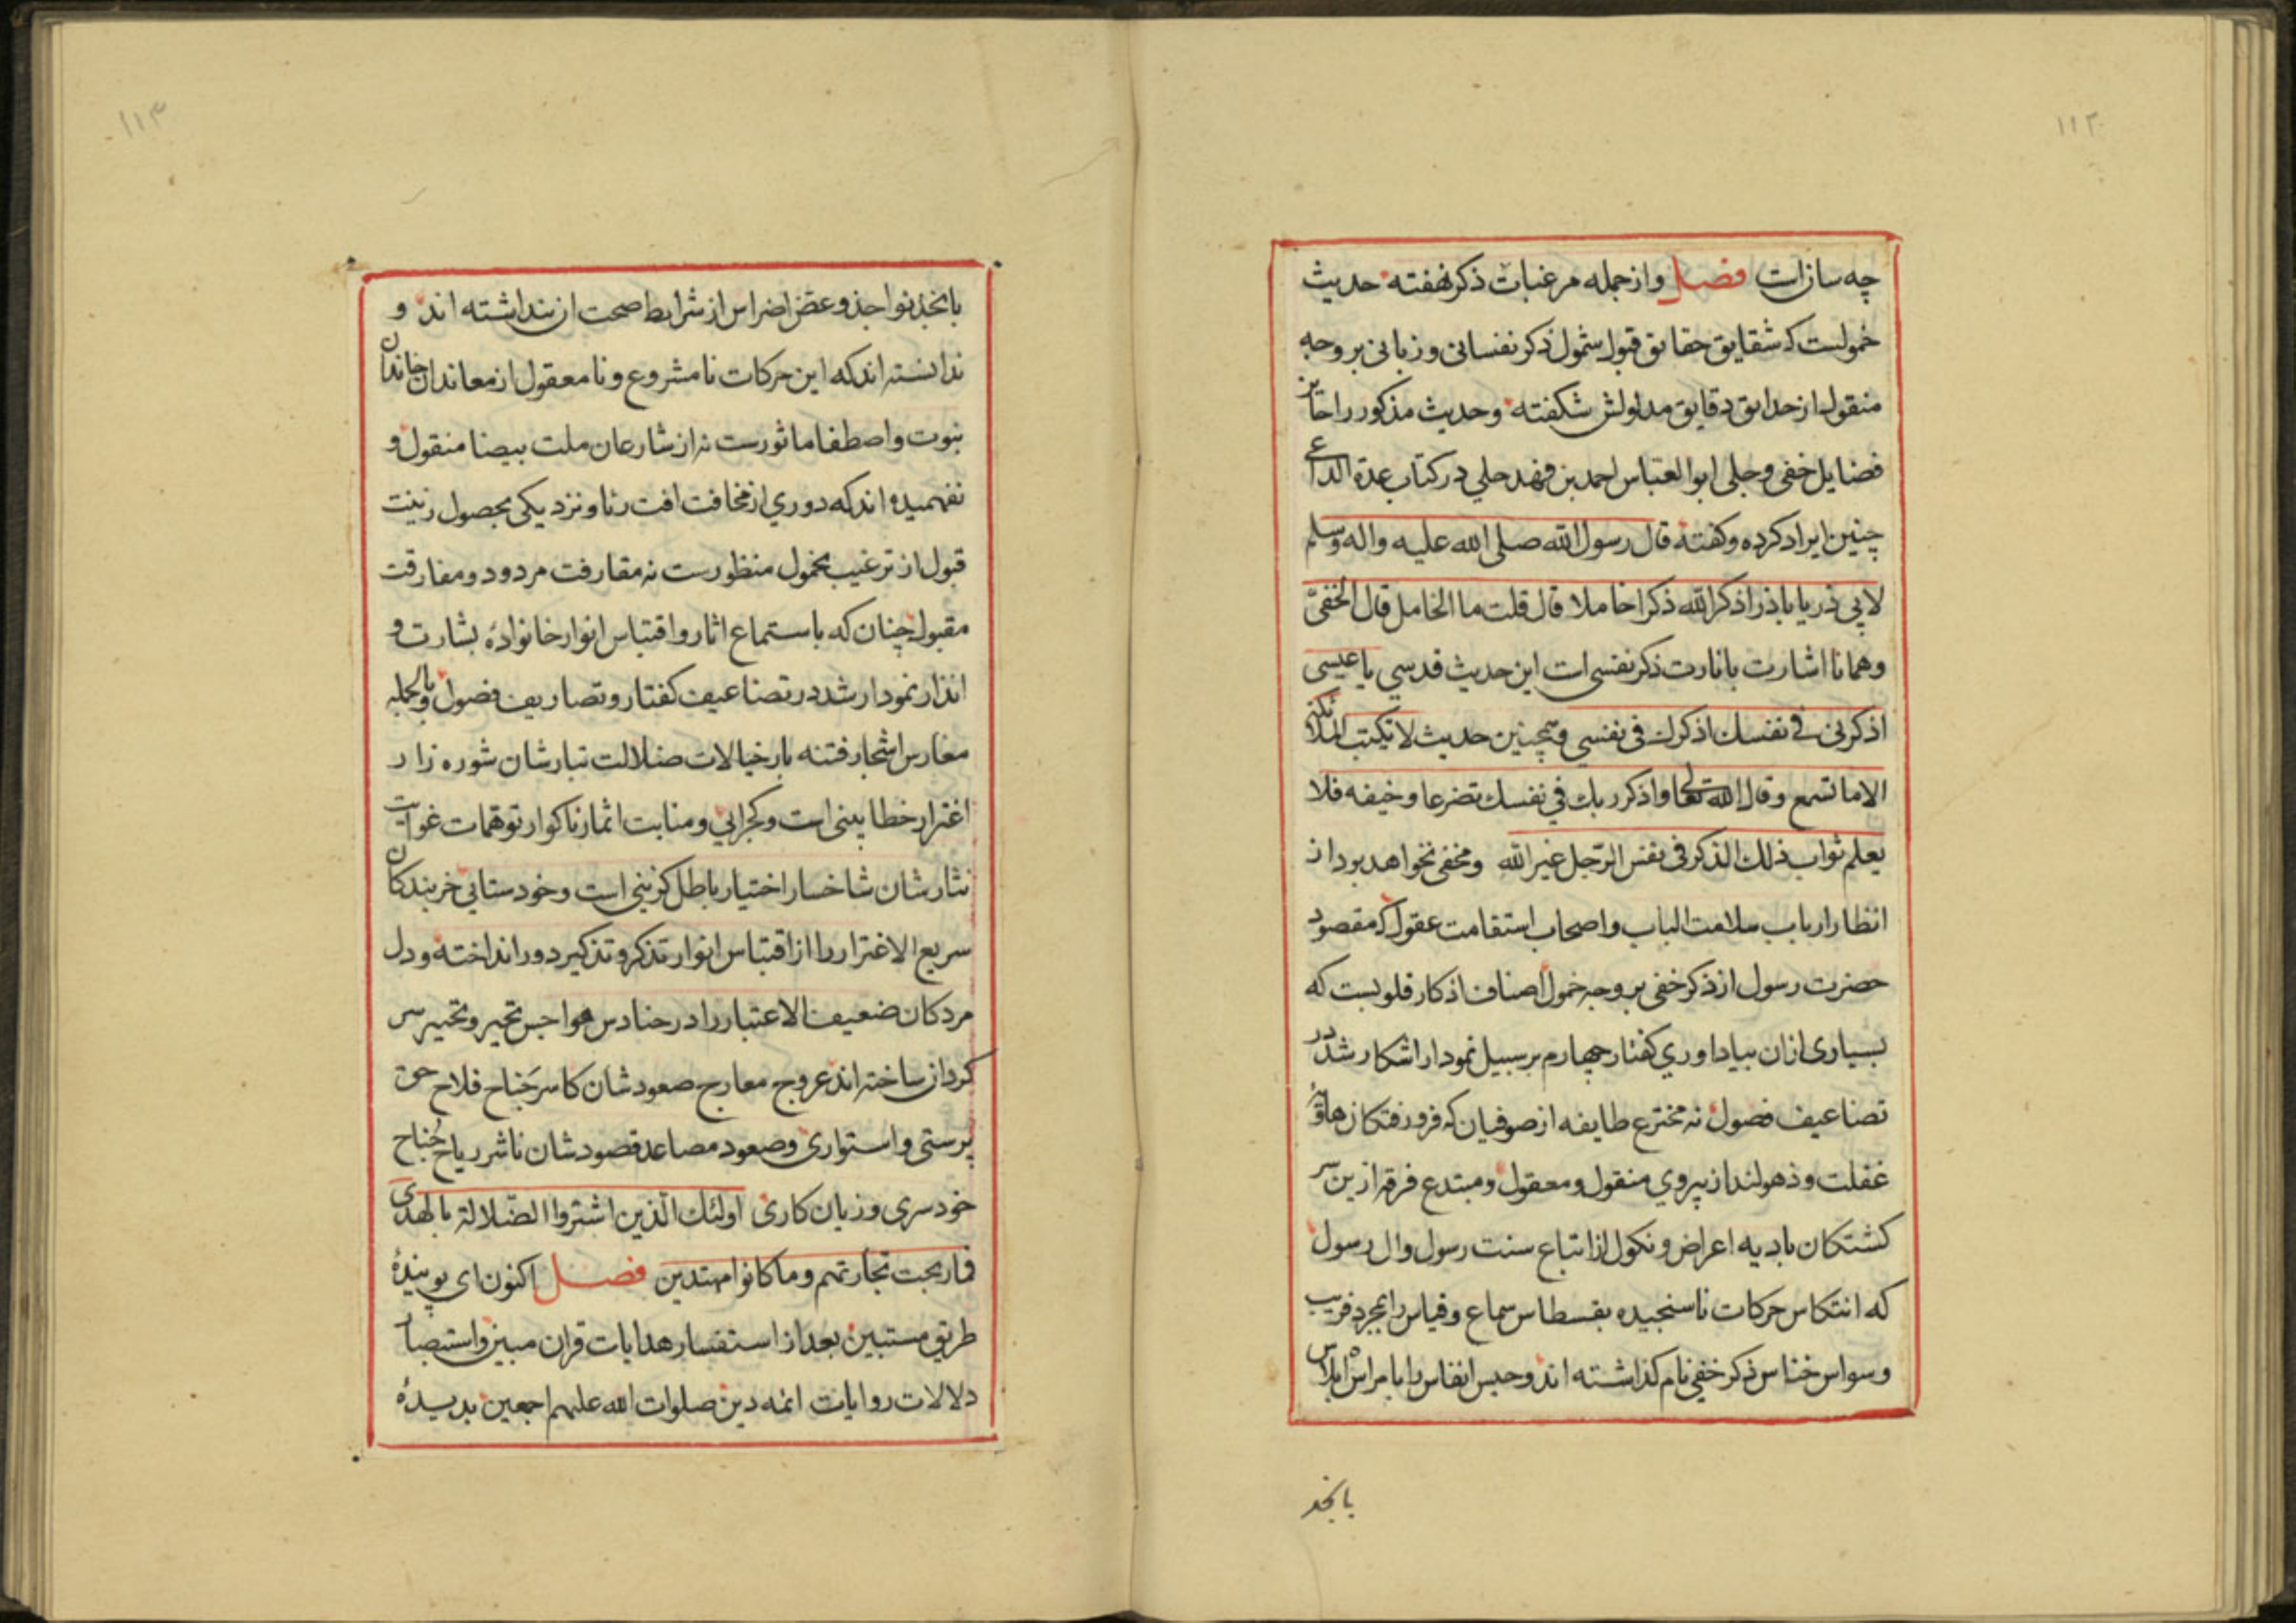 ۱۱۲
چه ساز است فصل واز جمله مرغبات ذکر نهفته حدیث
خمولیست که شقایق حقایق قبول شمول ذکر نفسانی و زبانی بر وجه
منقول از حدایق دقایق مدلولش شکفته وحدیث مذکور را حایز
فضایل خفی و جلی ابو العباس احمد بن فهد حلی در کتاب عدة الداعی
چنین ایراد کرده و گفته قال رسول الله صلی الله علیه واله وسلم
لابی ذر یا باذر اذکر الله ذکرا خاملا قال قلت ما الخامل قال الخفیّ
وهمانا اشارت بانارت ذکر نفسی است این حدیث قدسی یا عیسی
اذکرنی فی نفسک اذکرک فی نفسی و همچنین حدیث لا تکتب الملائکة
الا ما تسمع وقال الله تعالی واذکر ربک فی نفسک تضرعا وخیفه فلا
یعلم ثواب ذلک الذکر فی نفس الرّجل غیر الله ومخفی نخواهد بود از
انظار ارباب سلامت الباب واصحاب استقامت عقول که مقصود
حضرت رسول از ذکر خفی بر وجه خمول اصناف اذکار قلوبست که
بسیاری ازان بیاداوری گفتار چهارم بر سبیل نمودار اشکار شد در
تضاعیف فصول نه مخترع طایفه از صوفیان که فرو رفتکان هاویه
غفلت و ذهولند از پیروی منقول و معقول و مبتدع فرقه ازین سر
کشتکان بادیه اعراض و نکول از اتباع سنت رسول وال رسول
که انتکاس حرکات ناسنجیده بقسطاس سماع وقیاس را بمجرد فریب
وسواس خناس ذکر خفی نام کذاشته اند وحبس انفاس را بامر اس ابلاس
بانجذ
۱۱۳
بانجذ نواجذ و عض اضراس از شرایط صحت ان پنداشته اند و
ندانسته اند که این حرکات نامشروع و نامعقول از معاندان خاندان
نبوت واصطفا ماثورست نه از شارعان ملت بیضا منقول و
نفهمیده اند که دوری از مخافت افت ریا و نزدیکی بحصول زینت
قبول از ترغیب بخمول منظورست نه مقارفت مردود و مفارقت
مقبول چنان که باستماع اثار واقتباس انوار خانوادهٔ بشارت و
انذار نمودار شد در تضاعیف کفتار و تصاریف فصول و بالجمله
مغارس اشجار فتنه بار خیالات ضلالت تبارشان شوره زار
اغترار خطا بینی است و کجرایی و منابت اثمار ناکوار توهمات غوایت
نثارشان شاخسار اختیار باطل کزینی است و خودستایی خربندکان
سریع الاغترار را از اقتباس انوار تذکر و تذکیر دور انداخته و دل
مردکان ضعیف الاعتبار را در حنادس هواجس تحیر و تحییر سر
کردان ساخته اند عروج معارج صعودشان کاسر جَناح فلاح حق
پرستی واستواری و صعود مصاعد قصودشان ناشر ریاح جُناح
خودسری و زیان کاری اولئک الّذین اشتروا الضّلالة بالهدی
فما ربحت تجارتهم وما کانوا مهتدین فصل اکنون ای پویندهٔ
طریق مستبین بعد از استفسار هدایات قران مبین واستبصار
دلالات روایات ائمه دین صلوات الله علیهم اجمعین بدیدهٔ